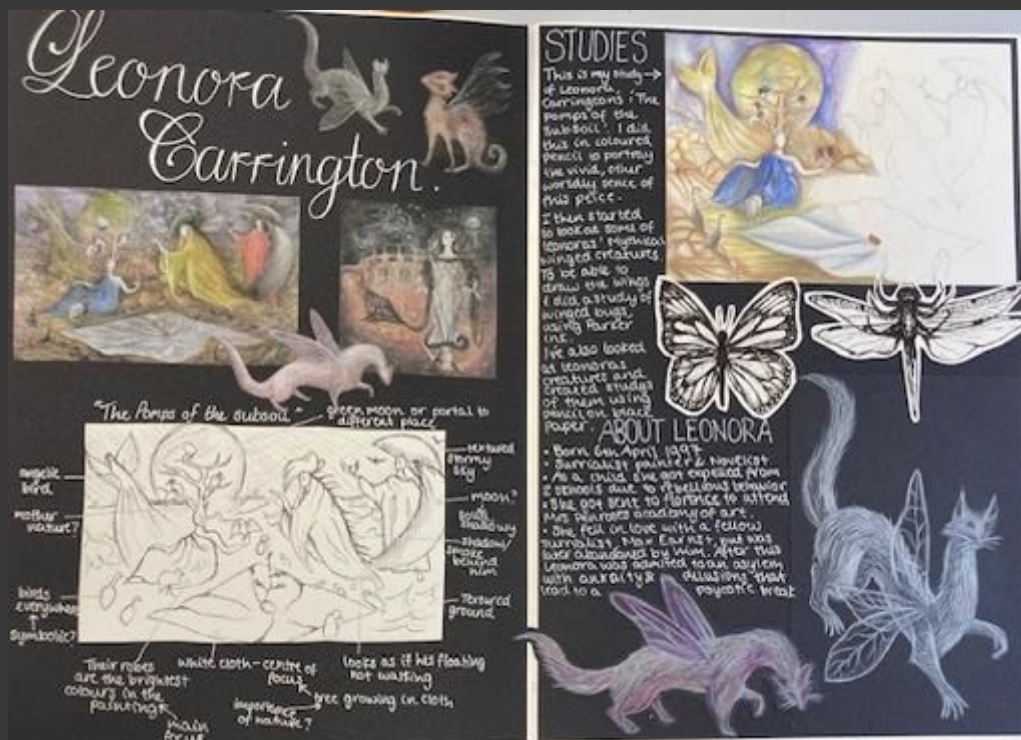 Leonora
Carrington.
"The Pomps of the subsoil"
green moon or portal to
different place
angelic
bird
mother
nature?
birds
everywhere
symbolic?
textured
stormy
sky
moon?
shadowy
shadow/
smoke
behind
him
Textured
ground
Their robes
are the brightest
colours in the
painting
main
focus
white cloth - centre of
focus
looks as if his floating
not walking
tree growing in cloth
importance
of nature?
STUDIES
This is my study
of Leonora
Carringtons 'The
pomps of the
subsoil'. I did
this in coloured
pencil to portray
the vivid, other
worldly sence of
this peice.
I then started
to look at some of
leonoras' Mythical
winged creatures.
To be able to
draw the wings
I did a study of
winged bugs,
using Parker
ink.
I've also looked
at leonoras
creatures and
created studys
of them using
pencil on black
paper.
ABOUT LEONORA
• Born 6th April
• Surrealist painter & Novelist
• As a child she got expelled from
2 schools due to rebellious behavior
• She got sent to florence to attend
Mrs Penroses academy of art.
• She fell in love with a fellow
surrealist, Max Earnst, but was
later abandoned by him. After this
Leonora was admited to an asylem
with anxiety & delusions that
lead to a psycotic break